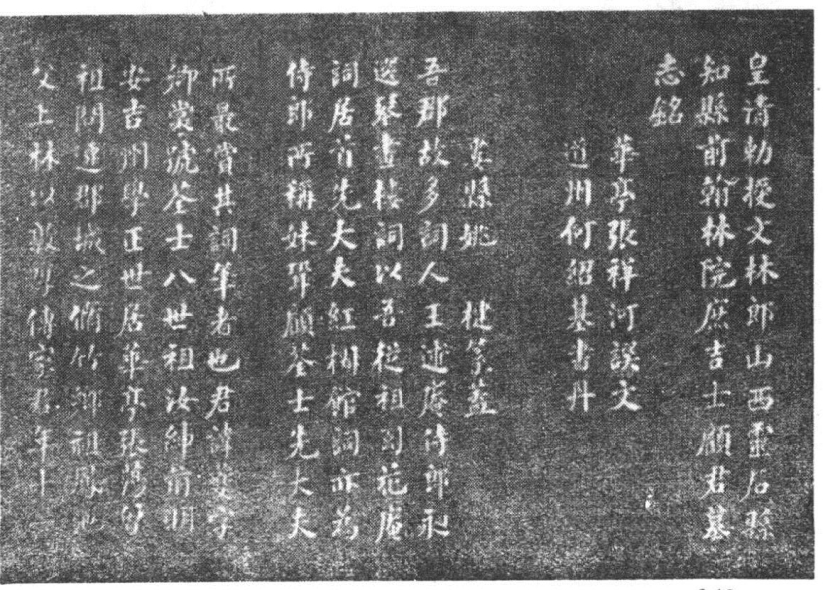 皇清勅授文林郎山西靈石縣
知縣前翰林院庶吉士顧君墓
志銘
華亭張祥河譔文
道州何紹基書丹
婁縣姚楗篆蓋
吾郡故多詞人王述庵侍郎刻
選琴畫樓詞以吾從祖
庵
詞居首先大夫紅椒館詞亦為
侍郎所稱妹壻顧荃士先大夫
所最賞其詞筆者也君諱夔字
卿裳號荃士八世祖汝紳前明
安吉州學正世居華亭張
祖
遷郡城之
竹鄉祖
父上林以
傳家君年十